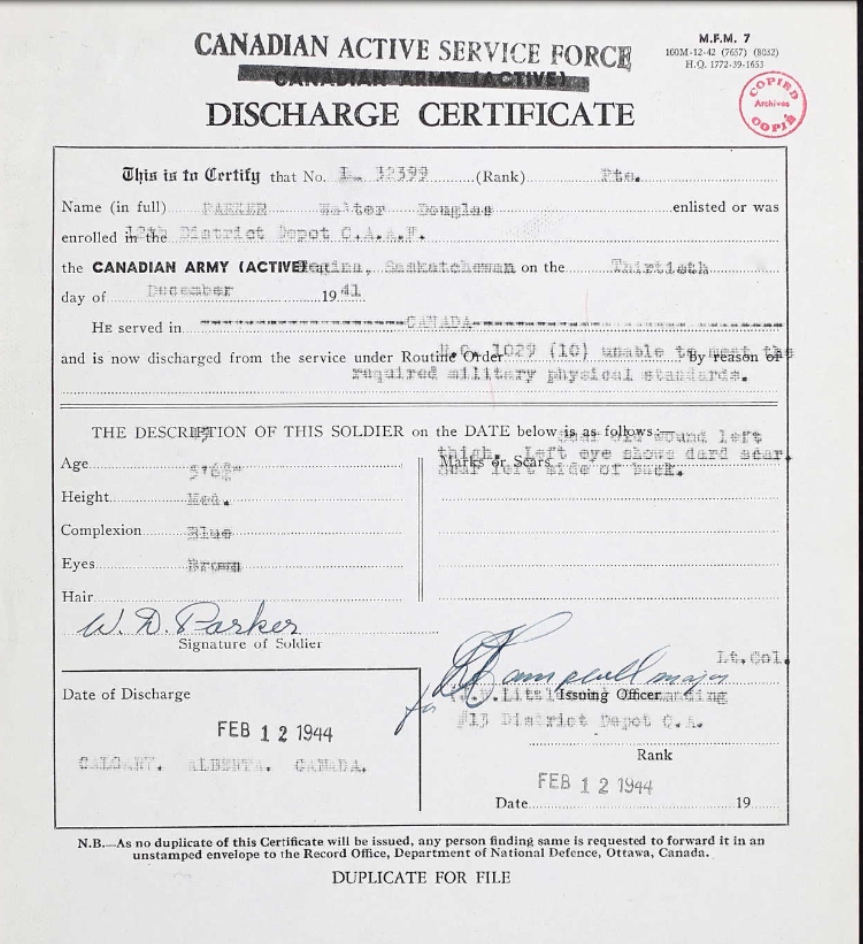 CANADIAN ACTIVE SERVICE FORCE
M.F.M. 7
160M-12-42 (7657) (8032)
H.Q. 1772-39-1653
CANADIAN ARMY (ACTIVE)
DISCHARGE CERTIFICATE
COPIED
Archives
COPIÉ
This is to Certify that No. L 32399 (Rank) Pte.
Name (in full) PARKER Walter Douglas enlisted or was
enrolled in the District Depot C.A.A.F.
the CANADIAN ARMY (ACTIVE) Regina, Saskatchewan on the Thirtieth
day of December 19 41
HE served in CANADA
and is now discharged from the service under Routine Order 1029 (10) unable to meet the By reason of
required military physical standards.
THE DESCRIPTION OF THIS SOLDIER on the DATE below is as follows:— Scar old wound left
thigh. Left eye shows dard scar.
Age Marks or Scars
Scar left side of back.
Height Med.
Complexion Blue
Eyes Brown
Hair
W. D. Parker
Signature of Soldier
Lt. Col.
Campbell major
for
Date of Discharge
Issuing Officer
#13 District Depot C.A.
FEB 12 1944
CALGARY. ALBERTA. CANADA.
Rank
FEB 12 1944
Date 19
N.B.—As no duplicate of this Certificate will be issued, any person finding same is requested to forward it in an
unstamped envelope to the Record Office, Department of National Defence, Ottawa, Canada.
DUPLICATE FOR FILE